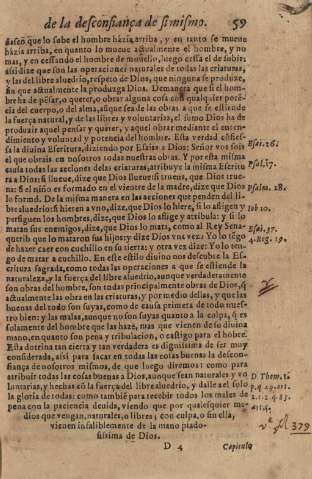 de la desconfiança de si mismo. 59
dasen, que lo sabe el hombre házia arriba, y en tanto se mueue
házia arriba, en quanto lo mueue actualmente el hombre, y no
mas, y en cessando el hombre de mouerlo, luego cessa el de subir:
assi dize que son las operaciones naturales de todas las criaturas,
y las del libre aluedrio, respeto de Dios, que ninguna se produze,
sin que actualmente la produzga Dios. Demanera que si el hom-
bre ha de pẽsar, o querer, o obrar alguna cosa con qualquier potẽ-
cia del cuerpo, o del alma, aunque sea de las obras a que se estiende
la fuerça natural, y de las libres y voluntarias, el sumo Dios ha de
produzir aquel pensar y querer, y aquel obrar mediante el enten-
dimiento y voluntad y potencia del hombre. Esta verdad cõfies-
sa la diuina Escritura, diziendo por Esaias a Dios: Señor vos sois
el que obrais en nosotros todas nuestras obras. Y por esta misma
Esai. 26.
causa todas las acciones delas criaturas, atribuye la misma Escritu
ra a Dios: si llueue, dize que Dios llueue: si truena, que Dios true-
Psal. 67.
na: si el niño es formado en el vientre de la madre, dize que Dios
Psalm. 28.
lo formò. De la misma manera en las acciones que penden del li-
bre aluedrio: si hieren a vno, dize, que Dios lo hiere, si lo afligen y
persiguen los hombres, dize, que Dios lo aflige y atribula: y si lo
Iob 10.
matan sus enemigos, dize, que Dios lo mata, como al Rey Sena-
querib que lo mataron sus hijos: y dize Dios vna vez: Yo lo tẽgo
Esai. 37.
4. Reg. 19.
de hazer caer con cuchillo en su tierra: y otra vez dize: Yo lo ten-
go de matar a cuchillo. En este estilo diuino nos descubre la Es-
critura sagrada, como todas las operaciones a que se estiende la
naturaleza, y la fuerça del libre aluedrio, aunque verdaderamente
son obras del hombre, son todas principalmente obras de Dios, q̃
actualmente las obra en las criaturas, y por medio dellas, y que las
buenas del todo son suyas, como de causa primera de todo nues-
tro bien: y las malas, aunque no son suyas quanto a la culpa, q̃ es
solamente del hombre que las haze, mas que vienen de su diuina
mano, en quanto son pena y tribulacion, o castigo para el hõbre.
Esta dotrina tan cierta y tan verdadera es dignissima de ser muy
considerada, assi para sacar en todas las cosas buenas la descon-
fiança de nosotros mismos, de que luego diremos: como para
atribuir todas las cosas buenas a Dios, aunque sean naturales y vo
luntarias, y hechas cõ la fuerça del libre aluedrio, y dalle a el solo
D Thom. 1.
la gloria de todas: como tambiẽ para recebir todos los males de
pena con la paciencia deuida, viendo que por qualesquier me-
dios que vengan, naturales, o libres, con culpa, o sin ella,
379
vienen infaliblemente de la mano piado-
sissima de Dios.
D 4 Capitulo